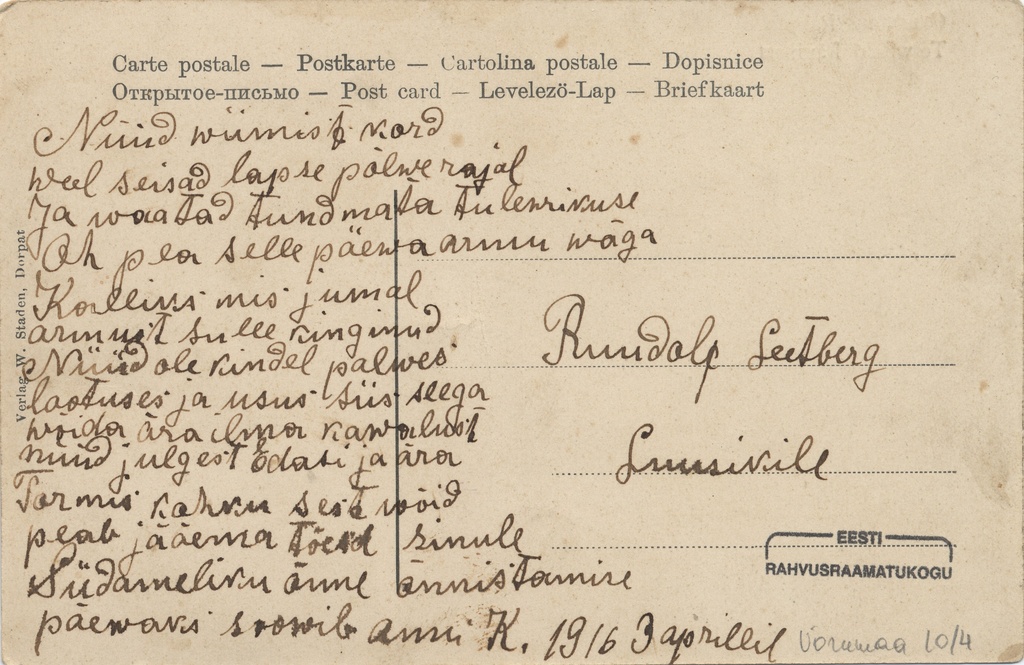 Carte postale — Postkarte — Cartolina postale — Dopisnice
Открытое-письмо — Post card — Levelezö-Lap — Briefkaart
Nüüd wiimist kord
weel seisad lapse põlwe rajal
Ja waatad tundmata tulewikuse
Oh pea selle päewa armu wäga
Kalliks mis jumal
armust sulle kinginud
Nüüd ole kindel palwes
lootuses ja usus siis seega
wõida ära ilma kawalust
nüüd julgest Edasi ja ära
Tormis kahku sest wõid
peab jääema tõeks sinule
Südameliku õnne õnnistamise
päewaks soowib Anni K. 1916 3 aprillil
Ruudolf Leetberg
Luusikile
Verlag W. Staden, Dorpat
EESTI
RAHVUSRAAMATUKOGU
10/4